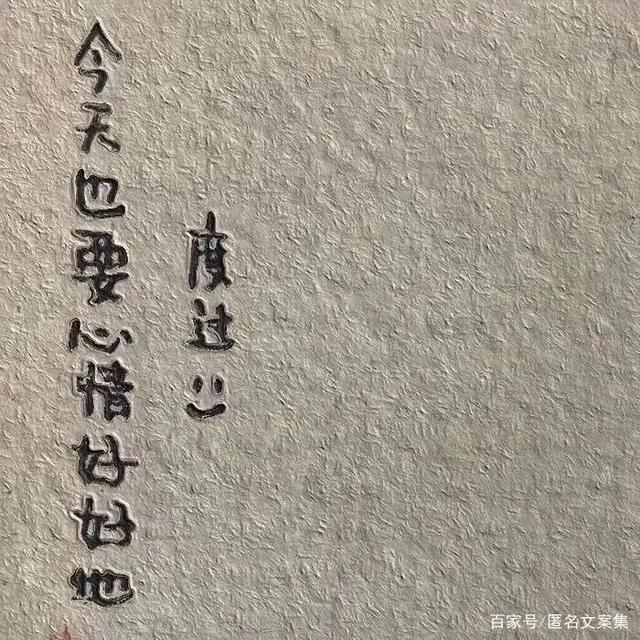 今天也要心情好好地
度过:)
百家号/匿名文案集